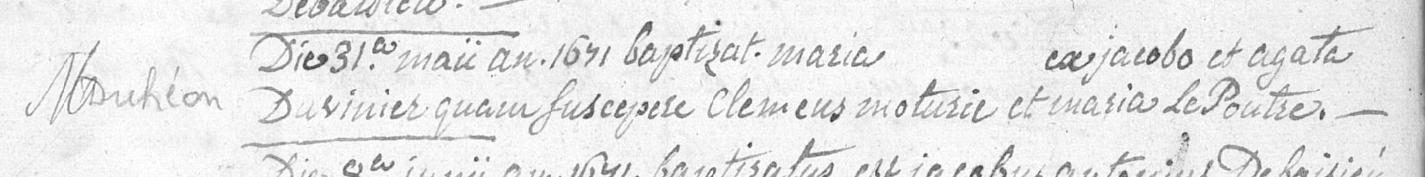 Debaisieu. —
Die 31.a maii an. 1671 baptizat. maria ex jacobo et agata
M Duhéon
Duvinier quam suscepere Clemens moturie et maria Le Poutre. —
Die 8a junii an. 1671. baptizatus est jacobus antonius Debaisieu